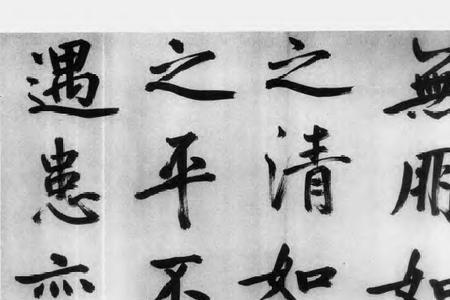 無朋如
之清如
之平不
遇患亦